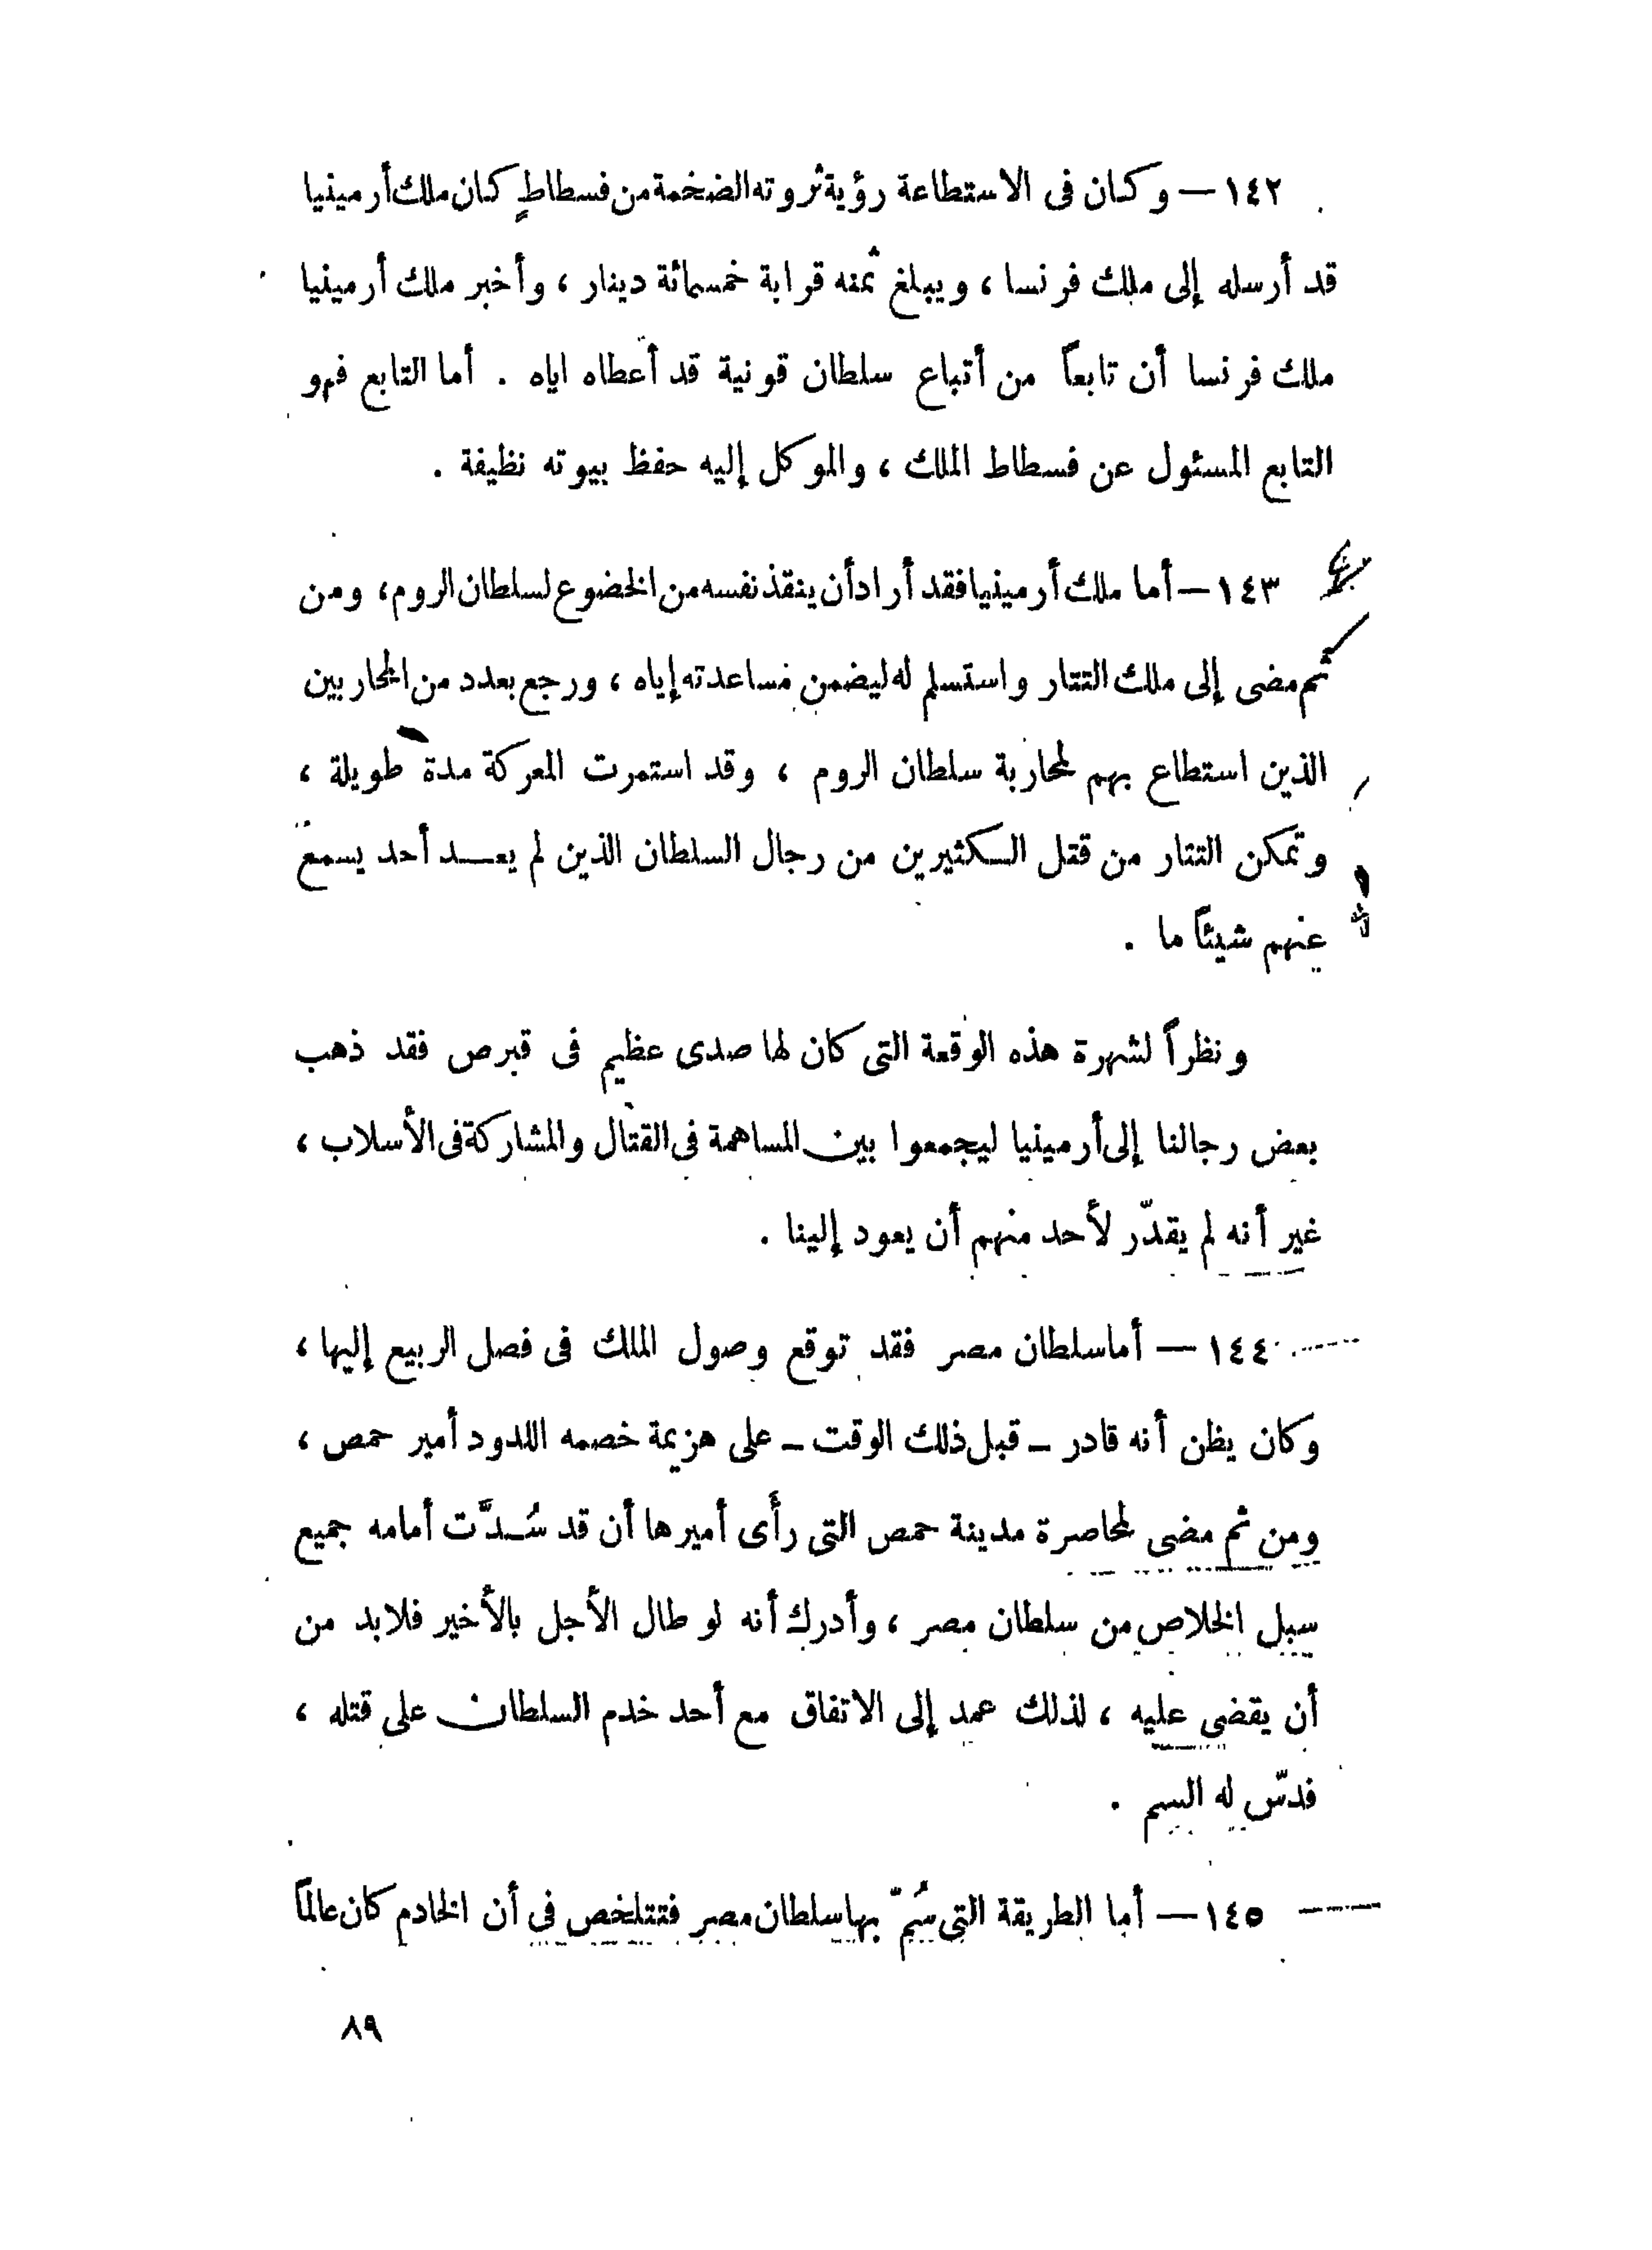 ١٤٢ — وكان فى الاستطاعة رؤية ثروته الضخمة من فسطاطٍ كان ملك أرمينيا
قد أرسله إلى ملك فرنسا ، ويبلغ ثمنه قرابة خمسمائة دينار ، وأخبر ملك أرمينيا
ملك فرنسا أن تابعاً من أتباع سلطان قونية قد أعطاه اياه . أما التابع فهو
التابع المسئول عن فسطاط الملك ، والموكل إليه حفظ بيوته نظيفة .
١٤٣ — أما ملك أرمينيا فقد أراد أن ينقذ نفسه من الخضوع لسلطان الروم ، ومن
ثم مضى إلى ملك التتار واستسلم له ليضمن مساعدته إياه ، ورجع بعدد من المحاربين
الذين استطاع بهم لمحاربة سلطان الروم ، وقد استمرت المعركة مدة طويلة ،
وتمكن التتار من قتل الكثيرين من رجال السلطان الذين لم يعد أحد يسمع
عنهم شيئاً ما .
ونظراً لشهرة هذه الوقعة التى كان لها صدى عظيم فى قبرص فقد ذهب
بعض رجالنا إلى أرمينيا ليجمعوا بين المساهمة فى القتال والمشاركة فى الأسلاب ،
غير أنه لم يقدّر لأحد منهم أن يعود إلينا .
١٤٤ — أما سلطان مصر فقد توقع وصول الملك فى فصل الربيع إليها ،
وكان يظن أنه قادر — قبل ذلك الوقت — على هزيمة خصمه اللدود أمير حمص ،
ومن ثم مضى لمحاصرة مدينة حمص التى رأى أميرها أن قد سُدَّت أمامه جميع
سبل الخلاص من سلطان مصر ، وأدرك أنه لو طال الأجل بالأخير فلابد من
أن يقضى عليه ، لذلك عمد إلى الاتفاق مع أحد خدم السلطان على قتله ،
فدسّ له السم .
١٤٥ — أما الطريقة التى سُمّ بها سلطان مصر فتتلخص فى أن الخادم كان عالماً
٨٩